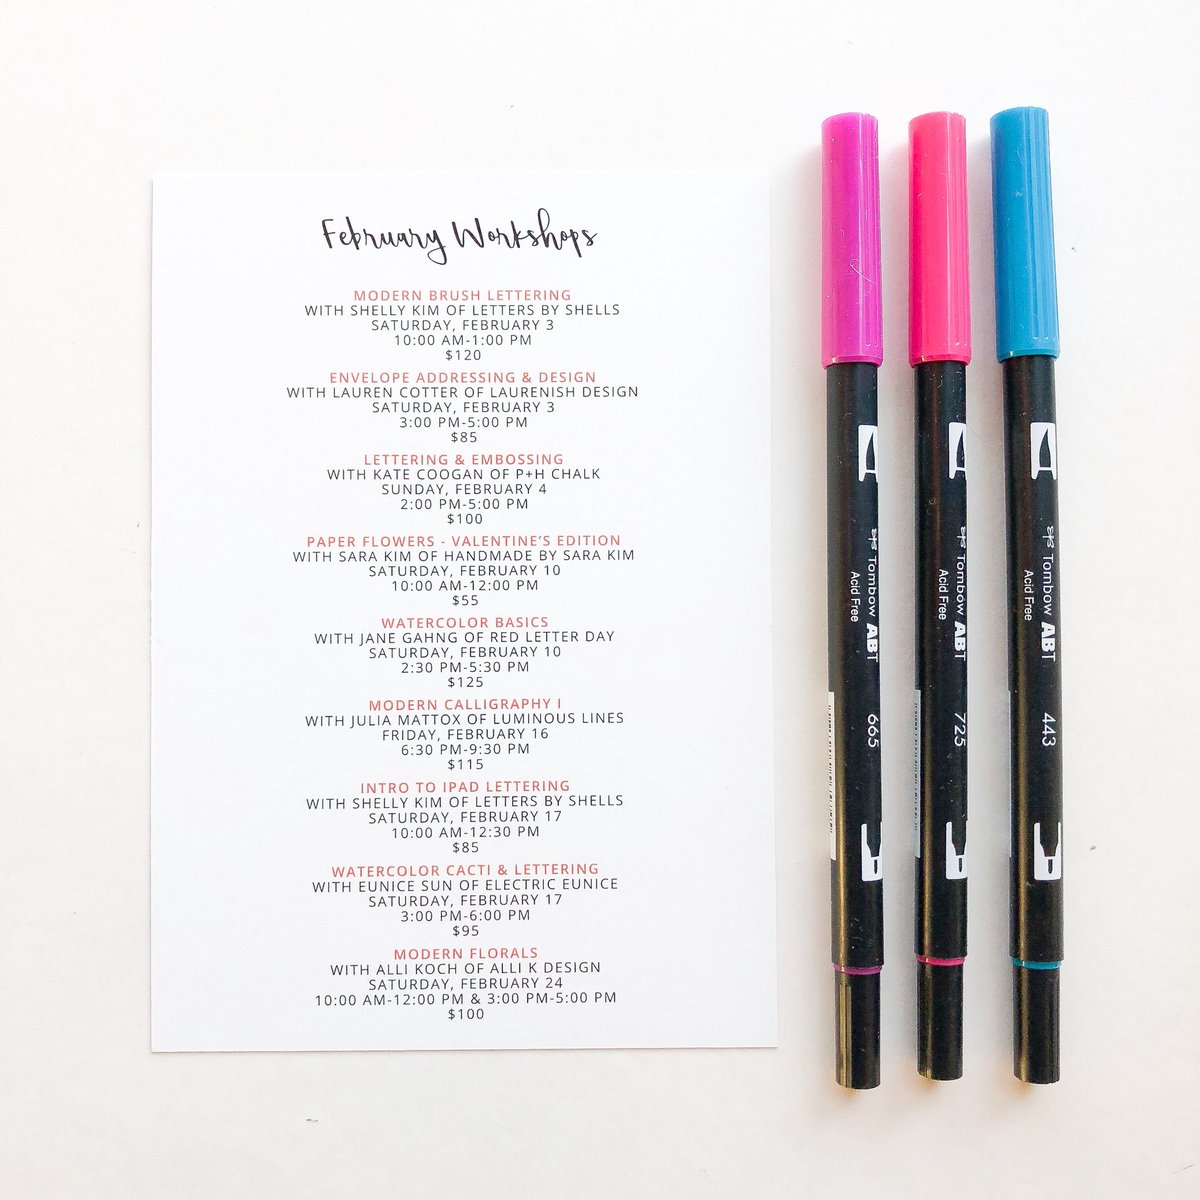 February Workshops
MODERN BRUSH LETTERING
WITH SHELLY KIM OF LETTERS BY SHELLS
SATURDAY, FEBRUARY 3
10:00 AM-1:00 PM
$120
ENVELOPE ADDRESSING & DESIGN
WITH LAUREN COTTER OF LAURENISH DESIGN
SATURDAY, FEBRUARY 3
3:00 PM-5:00 PM
$85
LETTERING & EMBOSSING
WITH KATE COOGAN OF P+H CHALK
SUNDAY, FEBRUARY 4
2:00 PM-5:00 PM
$100
PAPER FLOWERS - VALENTINE'S EDITION
WITH SARA KIM OF HANDMADE BY SARA KIM
SATURDAY, FEBRUARY 10
10:00 AM-12:00 PM
$55
WATERCOLOR BASICS
WITH JANE GAHNG OF RED LETTER DAY
SATURDAY, FEBRUARY 10
2:30 PM-5:30 PM
$125
MODERN CALLIGRAPHY I
WITH JULIA MATTOX OF LUMINOUS LINES
FRIDAY, FEBRUARY 16
6:30 PM-9:30 PM
$115
INTRO TO IPAD LETTERING
WITH SHELLY KIM OF LETTERS BY SHELLS
SATURDAY, FEBRUARY 17
10:00 AM-12:30 PM
$85
WATERCOLOR CACTI & LETTERING
WITH EUNICE SUN OF ELECTRIC EUNICE
SATURDAY, FEBRUARY 17
3:00 PM-6:00 PM
$95
MODERN FLORALS
WITH ALLI KOCH OF ALLI K DESIGN
SATURDAY, FEBRUARY 24
10:00 AM-12:00 PM & 3:00 PM-5:00 PM
$100
Tombow ABT 665
Acid Free
Tombow ABT 725
Acid Free
Tombow ABT 443
Acid Free